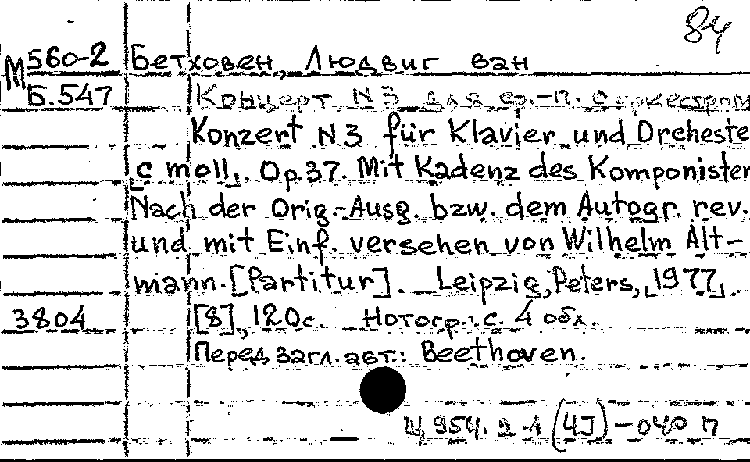 84
М 560-2 Бетховен, Людвиг ван
Б.547 Концерт N3 для ф.-п. с оркестром
Konzert N3 für Klavier und Orcheste
c moll, Op.37. Mit Kadenz des Komponisten
Nach der Orig.-Ausg. bzw. dem Autogr. rev.
und mit Einf. versehen von Wilhelm Alt-
mann. [Partitur]. Leipzig, Peters, [1977].
3804 [8], 120с. Нотогр.: с. 4 обл.
Перед загл. авт.: Beethoven.
Ц 954. 2-1 (4J)-040 П